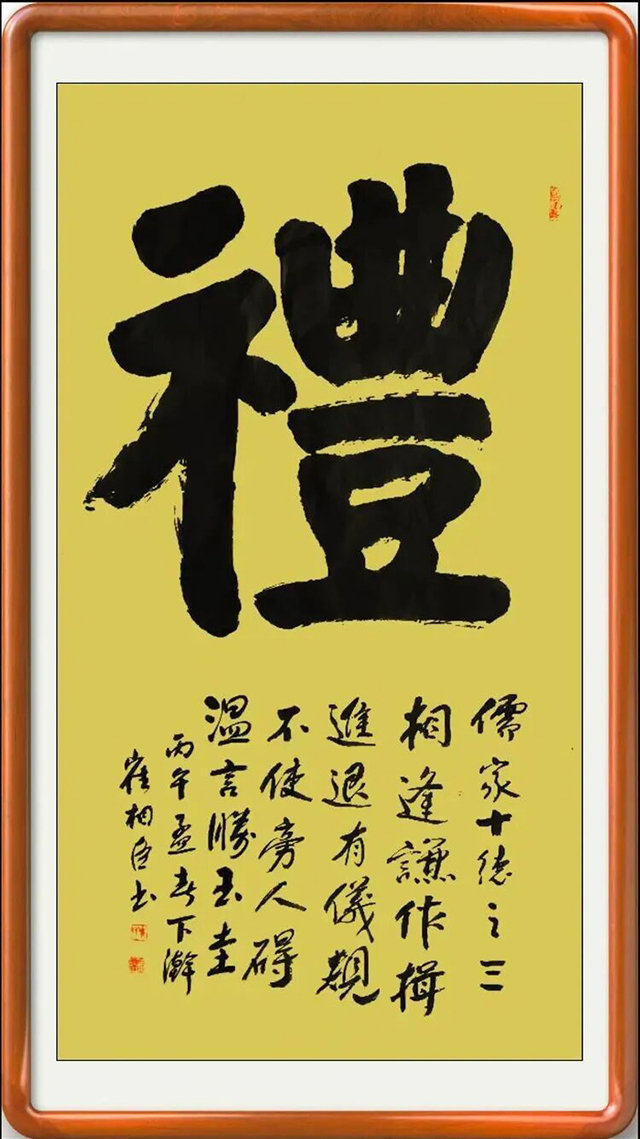 禮
儒家十德之三
相逢謙作揖
進退有儀規
不使旁人碍
温言勝玉圭
丙午孟春下澣
崔相臣书